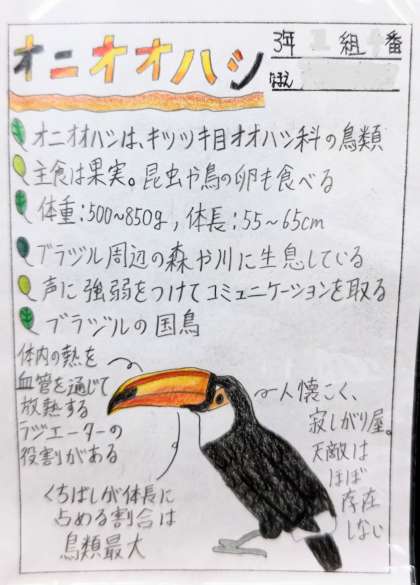 オニオオハシ
3年 組 番
なまえ
オニオオハシは、キツツキ目オオハシ科の鳥類
主食は果実。昆虫や鳥の卵も食べる
体重:500~850g, 体長:55~65cm
ブラジル周辺の森や川に生息している
声に強弱をつけてコミュニケーションを取る
ブラジルの国鳥
体内の熱を
血管を通じて
放熱する
ラジエーターの
役割がある
くちばしが体長に
占める割合は
鳥類最大
人懐こく、
寂しがり屋。
天敵は
ほぼ
存在
しない